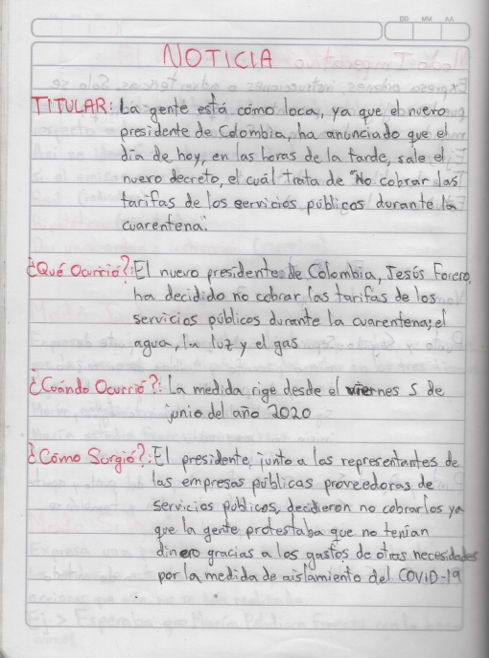 DD MM AA
NOTICIA
TITULAR: La gente está cómo loca, ya que el nuevo
presidente de Colombia, ha anunciado que el
día de hoy, en las horas de la tarde, sale el
nuevo decreto, el cuál trata de "No cobrar las
tarifas de los servicios públicos durante la
cuarentena".
¿Qué Ocurrió?: El nuevo presidente de Colombia, Jesús Forero,
ha decidido no cobrar las tarifas de los
servicios públicos durante la cuarentena; el
agua, la luz y el gas
¿Cuándo Ocurrió?: La medida rige desde el viernes 5 de
junio del año 2020
¿Cómo Surgió?: El presidente, junto a las representantes de
las empresas públicas proveedoras de
servicios públicos, decidieron no cobrarlos ya
que la gente protestaba que no tenían
dinero gracias a los gastos de otras necesidades
por la medida de aislamiento del COVID-19